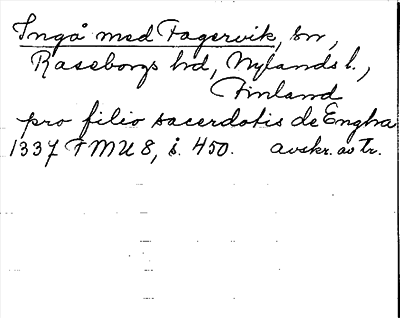 Ingå med Fagervik, sn,
Raseborgs hd, Nylands l.,
Finland
pro filio sacerdotis de Engha
1337 FMU 8, s. 450. avskr. av tr.